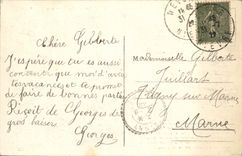 Chère Gilberte
J'espère que tu es aussi
contente que moi d'avoir
les vacances et te promet
de faire de bonnes parties
Reçoit de Georges de
gros baisers
Georges
Mademoiselle Gilberte
Juillart
sur Marne
Marne